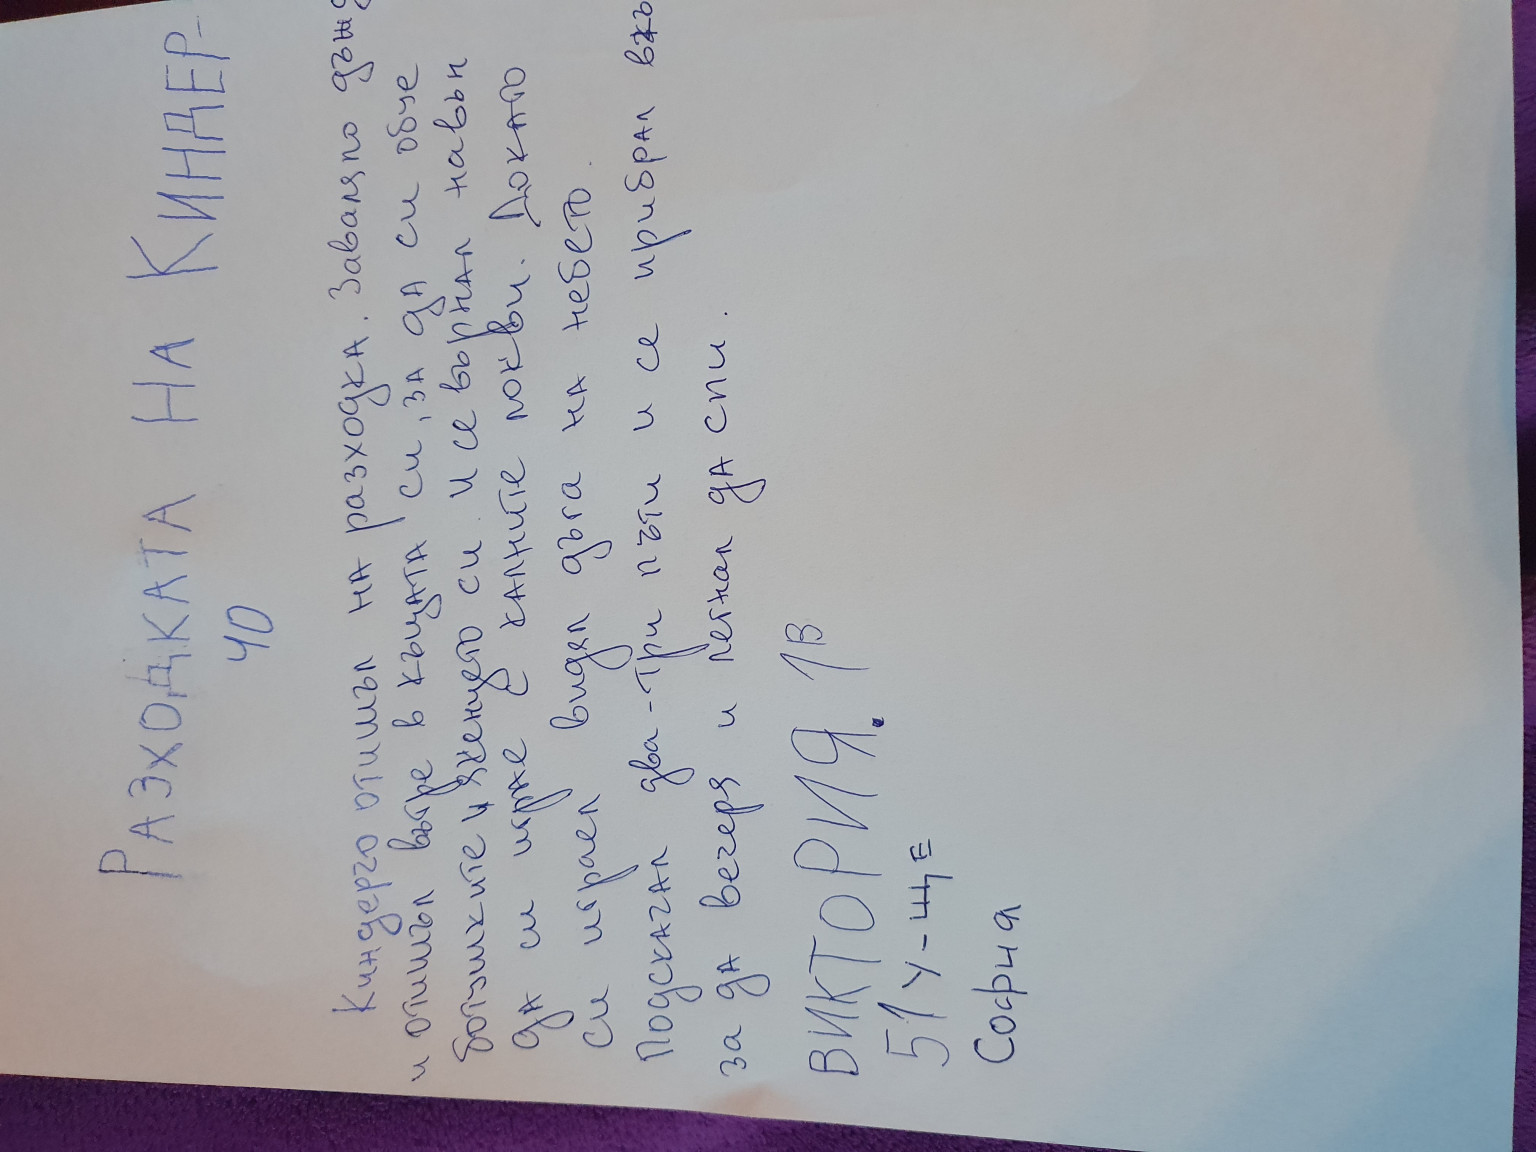 РАЗХОДКАТА НА КИНДЕР-
ЧО
Киндерчо отишъл на разходка. Заваляло дъжд
и отишъл вътре в къщата си, за да си обуе
ботушките и якенцето си. И се върнал навън
да си играе с калните локви. Докато
си играел видял дъга на небето.
Подскачал два-три пъти и се прибрал вкъ
за да вечеря и легнал да спи.
ВИКТОРИЯ. 1В
51 У-ЩЕ
София